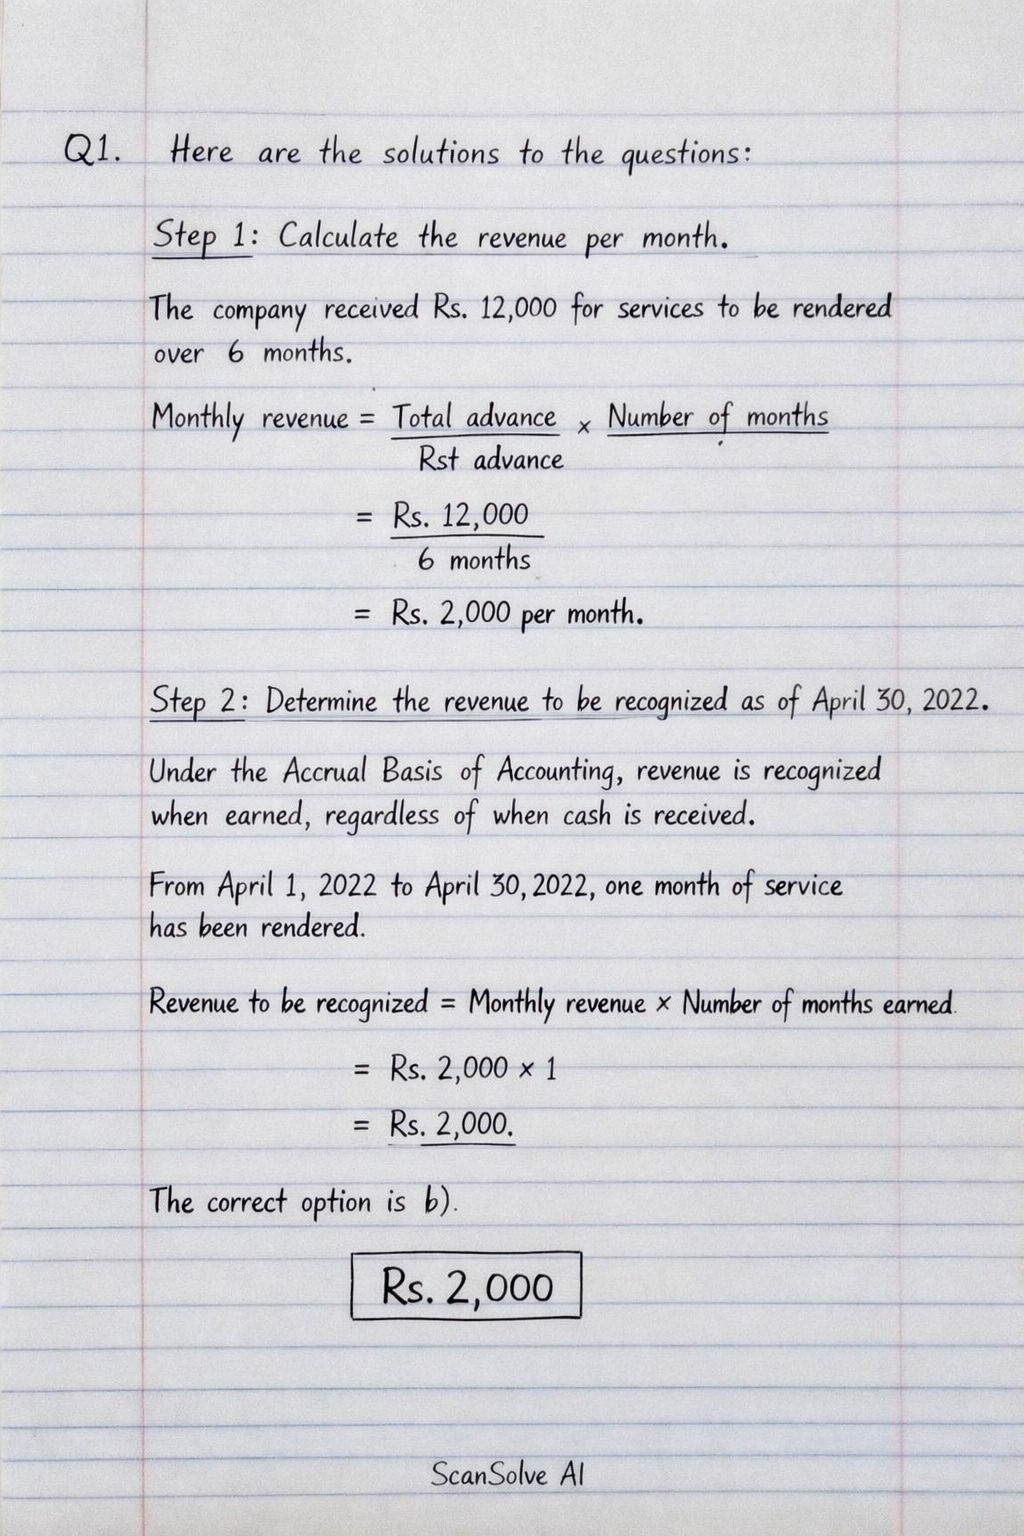 Q1. Here are the solutions to the questions:
Step 1: Calculate the revenue per month.
The company received Rs. 12,000 for services to be rendered
over 6 months.
Monthly revenue = Total advance × Number of months
Rst advance
= Rs. 12,000
6 months
= Rs. 2,000 per month.
Step 2: Determine the revenue to be recognized as of April 30, 2022.
Under the Accrual Basis of Accounting, revenue is recognized
when earned, regardless of when cash is received.
From April 1, 2022 to April 30, 2022, one month of service
has been rendered.
Revenue to be recognized = Monthly revenue × Number of months earned.
= Rs. 2,000 × 1
= Rs. 2,000.
The correct option is b).
Rs. 2,000
ScanSolve AI